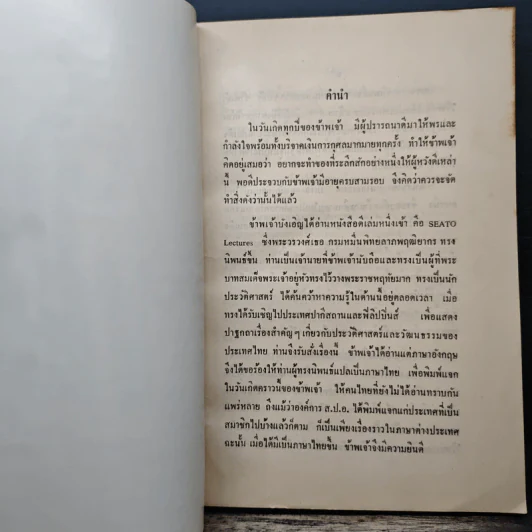 คำนำ
ในวันเกิดทุกปีของข้าพเจ้า มีผู้ปรารถนาดีมาให้พรและ
กำลังใจพร้อมทั้งบริจาคเงินการกุศลมากมายทุกครั้ง ทำให้ข้าพเจ้า
คิดอยู่เสมอว่า อยากจะทำของที่ระลึกสักอย่างหนึ่งให้ผู้หวังดีเหล่า
นี้ พอดีประจวบกับข้าพเจ้ามีอายุครบสามรอบ จึงคิดว่าควรจะจัด
ทำสิ่งดังว่านั้นได้แล้ว
ข้าพเจ้าบังเอิญได้อ่านหนังสือดีเล่มหนึ่งเข้า คือ SEATO
Lectures ซึ่งพระวรวงศ์เธอ กรมหมื่นพิทยลาภพฤฒิยากร ทรง
นิพนธ์ขึ้น ท่านเป็นเจ้านายที่ข้าพเจ้านับถือและทรงเป็นผู้ที่พระ
บาทสมเด็จพระเจ้าอยู่หัวทรงไว้วางพระราชหฤทัยมาก ทรงเป็นนัก
ประวัติศาสตร์ ได้ค้นคว้าหาความรู้ในด้านนี้อยู่ตลอดเวลา เมื่อ
ทรงได้รับเชิญไปประเทศปากีสถานและฟิลิปปินส์ เพื่อแสดง
ปาฐกถาเรื่องสำคัญๆ เกี่ยวกับประวัติศาสตร์และวัฒนธรรมของ
ประเทศไทย ท่านจึงรับสั่งเรื่องนี้ ข้าพเจ้าได้อ่านแต่ภาษาอังกฤษ
จึงได้ขอร้องให้ท่านผู้ทรงนิพนธ์แปลเป็นภาษาไทย เพื่อพิมพ์แจก
ในวันเกิดคราวนี้ของข้าพเจ้า ให้คนไทยที่ยังไม่ได้อ่านทราบกัน
แพร่หลาย ถึงแม้ว่าองค์การ ส.ป.อ. ได้พิมพ์แจกแก่ประเทศที่เป็น
สมาชิกไปบ้างแล้วก็ตาม ก็เป็นเพียงเรื่องราวในภาษาต่างประเทศ
ฉะนั้น เมื่อได้มีเป็นภาษาไทยขึ้น ข้าพเจ้าจึงมีความยินดี